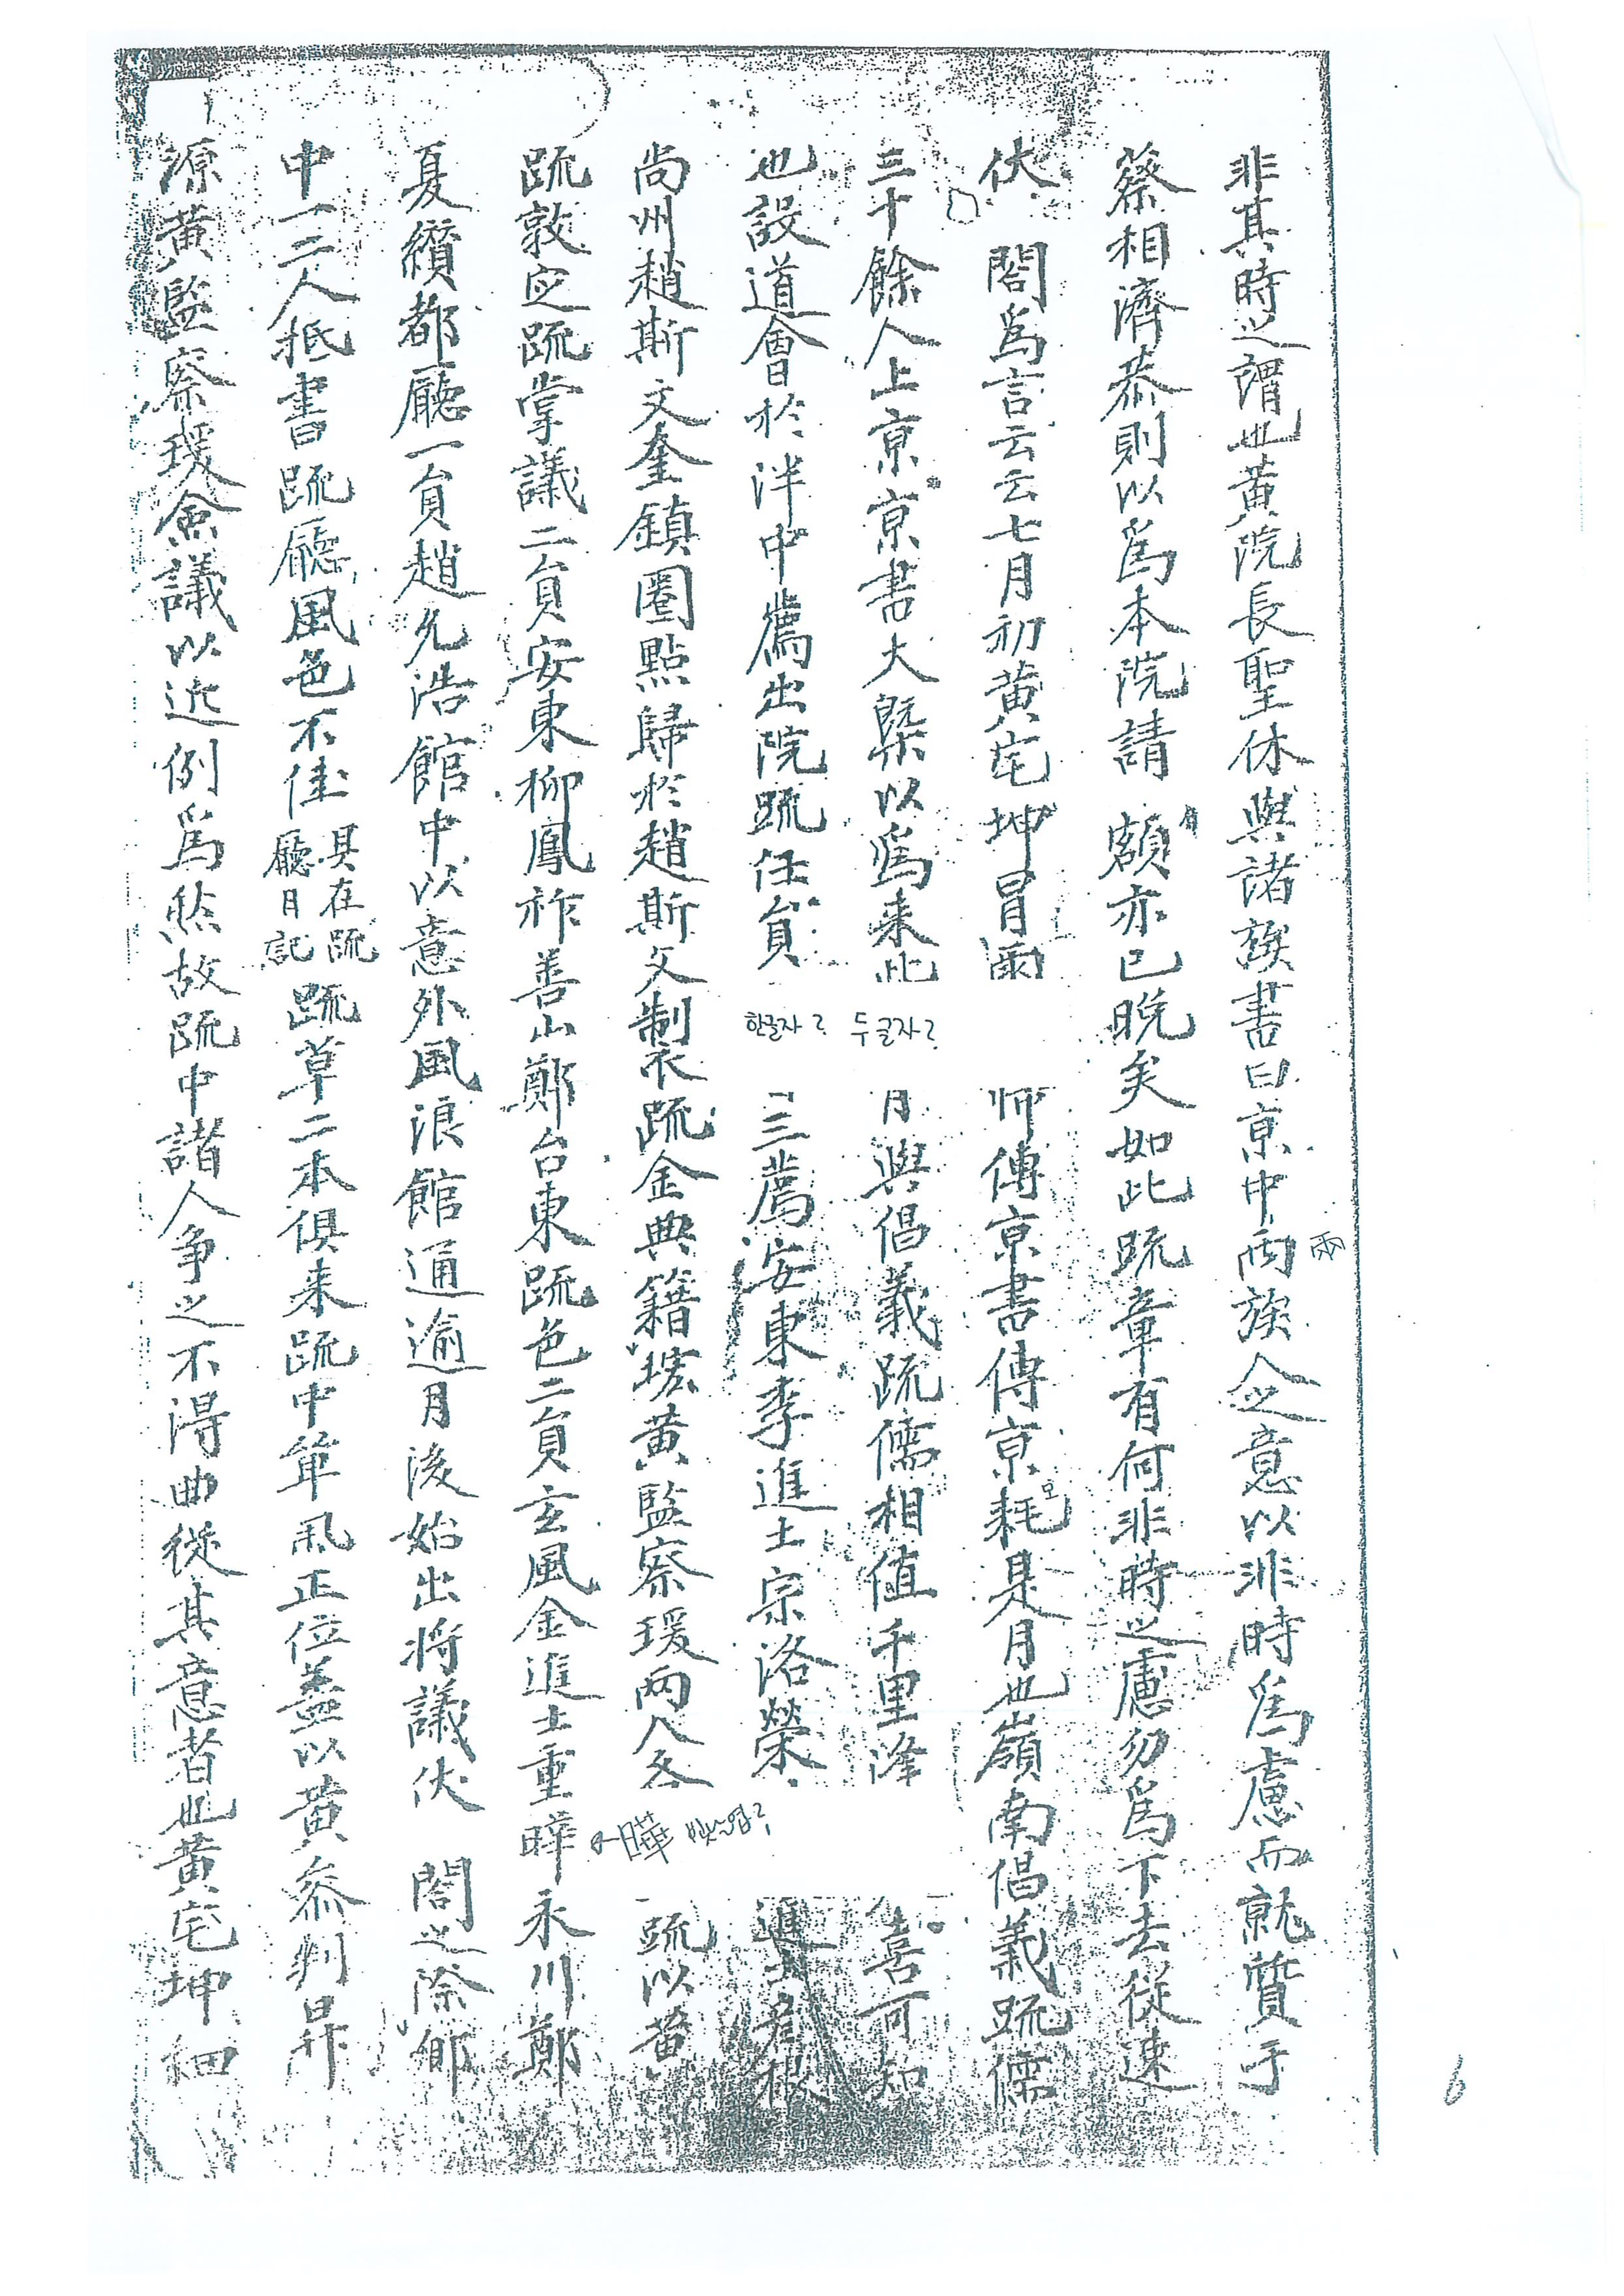 非其時之謂也黃院長聖休與諸族書曰京中両族人之意以非時爲慮而就質于
兩
蔡相濟恭則以爲本院請 額亦已晩矣如此疏章有何非時之慮勿爲下去從速
伏 閤爲言云云七月初黃宅坤冒雨 師傳京書傳京耗是月也嶺南倡義疏儒
모
三十餘人上京京書大槩以爲來此 두글자? 月與倡義疏儒相值千里逢 喜可知
也設道會於泮中薦出院疏任貟 한글자? 三薦安東李進士宗洛榮 進士
尙州趙斯文奎鎮圈點歸於趙斯文製疏金典籍 黃監察瑗两人各 疏以黃
疏敦迊疏掌議二貟安東柳鳳祚善山鄭台東疏色二貟玄風金進士重暐永川鄭
曄
夏纘都廳一貟趙允浩館中以意外風浪館通逾月後始出將議伏 閤之際鄕
中一二人抵書疏廳風色不佳具在疏
廳日記疏草二本俱來疏中第 正位盖以黃叅判昇
源黃監察瑗僉議以近例爲然故疏中諸人争之不得曲從其意者也黃宅坤細
6